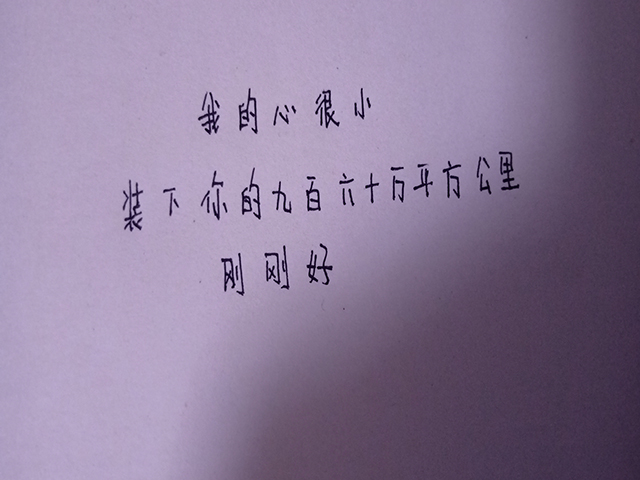 我的心很小
装下你的九百六十万平方公里
刚刚好